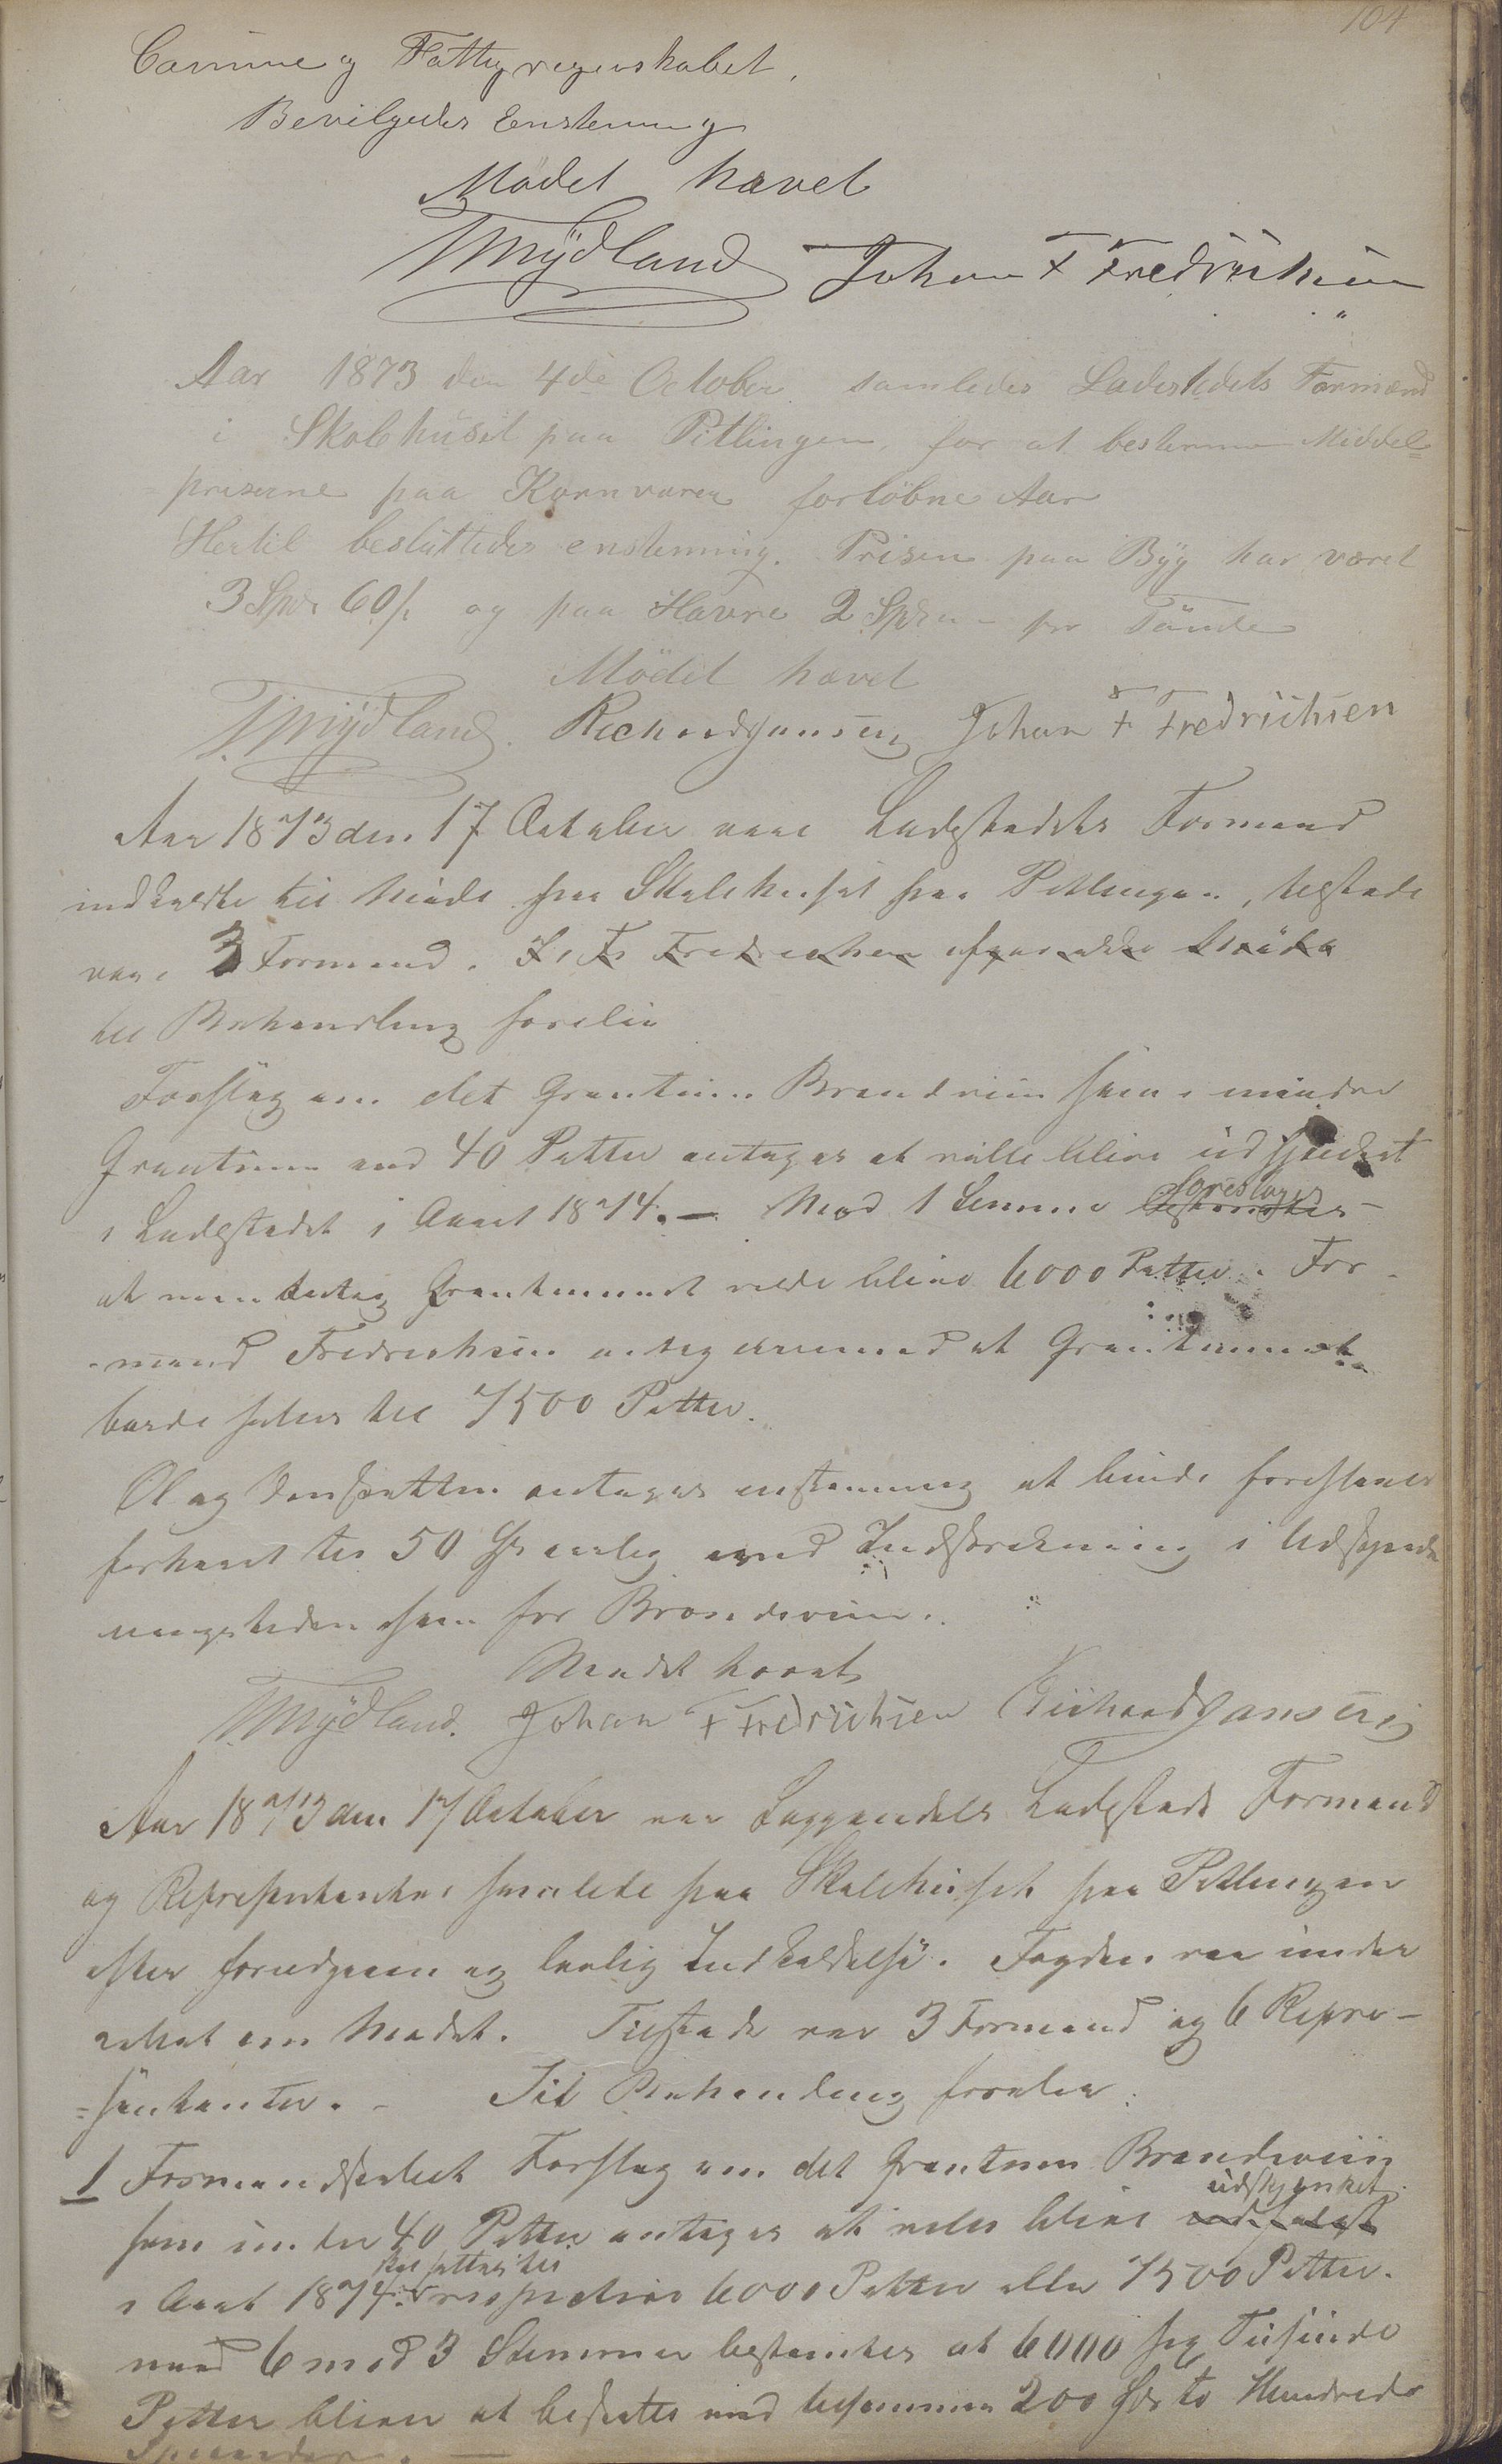 104
Comune og Fattigregnskabet.
Bevilgedes Enstemmig
Mødet hævet
TMydland Johan F Fredrichsen
Aar 1873 den 4de October samledes Ladestedets Formænd
i Skolehuset paa Pitlingen, for at bestemme Middel=
priserne paa Kornvarer forløbne Aar
Hertil besluttedes enstemmig. Prisen paa Byg har været
3 Spd 60 s og paa Havre 2 Spd " - pr Tønde
Mødet hævet
TMydland. Richard Jansen Johan F Fredrichsen
Aar 1873 den 17 October vare Ladestedets Formænd
indkaldte til Møde paa Skolehuset paa Pitlingen, tilstede
vare 3 Formænd. J. F. Fredrichsen
til Behandling forelaa
Forslag om det Qvantum Brændeviin som i mindre
Qvantum end 40 Potter antages at ville blive udskjænket
i Ladestedet i Aaret 1874. — Med 1 Stemme foreslages
at Qvantummet vilde blive 6000 Potter. For-
-mand Fredrichsen at Qvantummet
burde sættes til 7500 Potter.
Øl og antages enstemmig at burde foreslaaes
forhøiet til 50 Spd aarlig med Indskrænkning i Udskjænk
ningstiden som for Brændeviin.
Mødet hævet
TMydland. Johan F Fredrichsen Richard Jansen
Aar 1873 den 17 October var Soggendals Ladesteds Formænd
og Repræsentanter samlede paa Skolehuset paa Pitlingen
efter foregaaende og lovlig Indkaldelse. Fogden var under
rettet om Mødet. Tilstede var 3 Formænd og 6 Repræ-
=sentanter. - Til Behandling forelaa:
1 Formandskabet Forslag om det Qvantum Brændeviin
som under 40 Potter antages at ville blive udskjænket
i Aaret 1874. skal sættes til respective 6000 Potter eller 7500 Potter.
med 6 mod 3 Stemmer bestemtes at 6000 sex Tusinde
Potter bliver at beskatte med tilsammen 200 Spd to Hundrede
Speciedaler. —